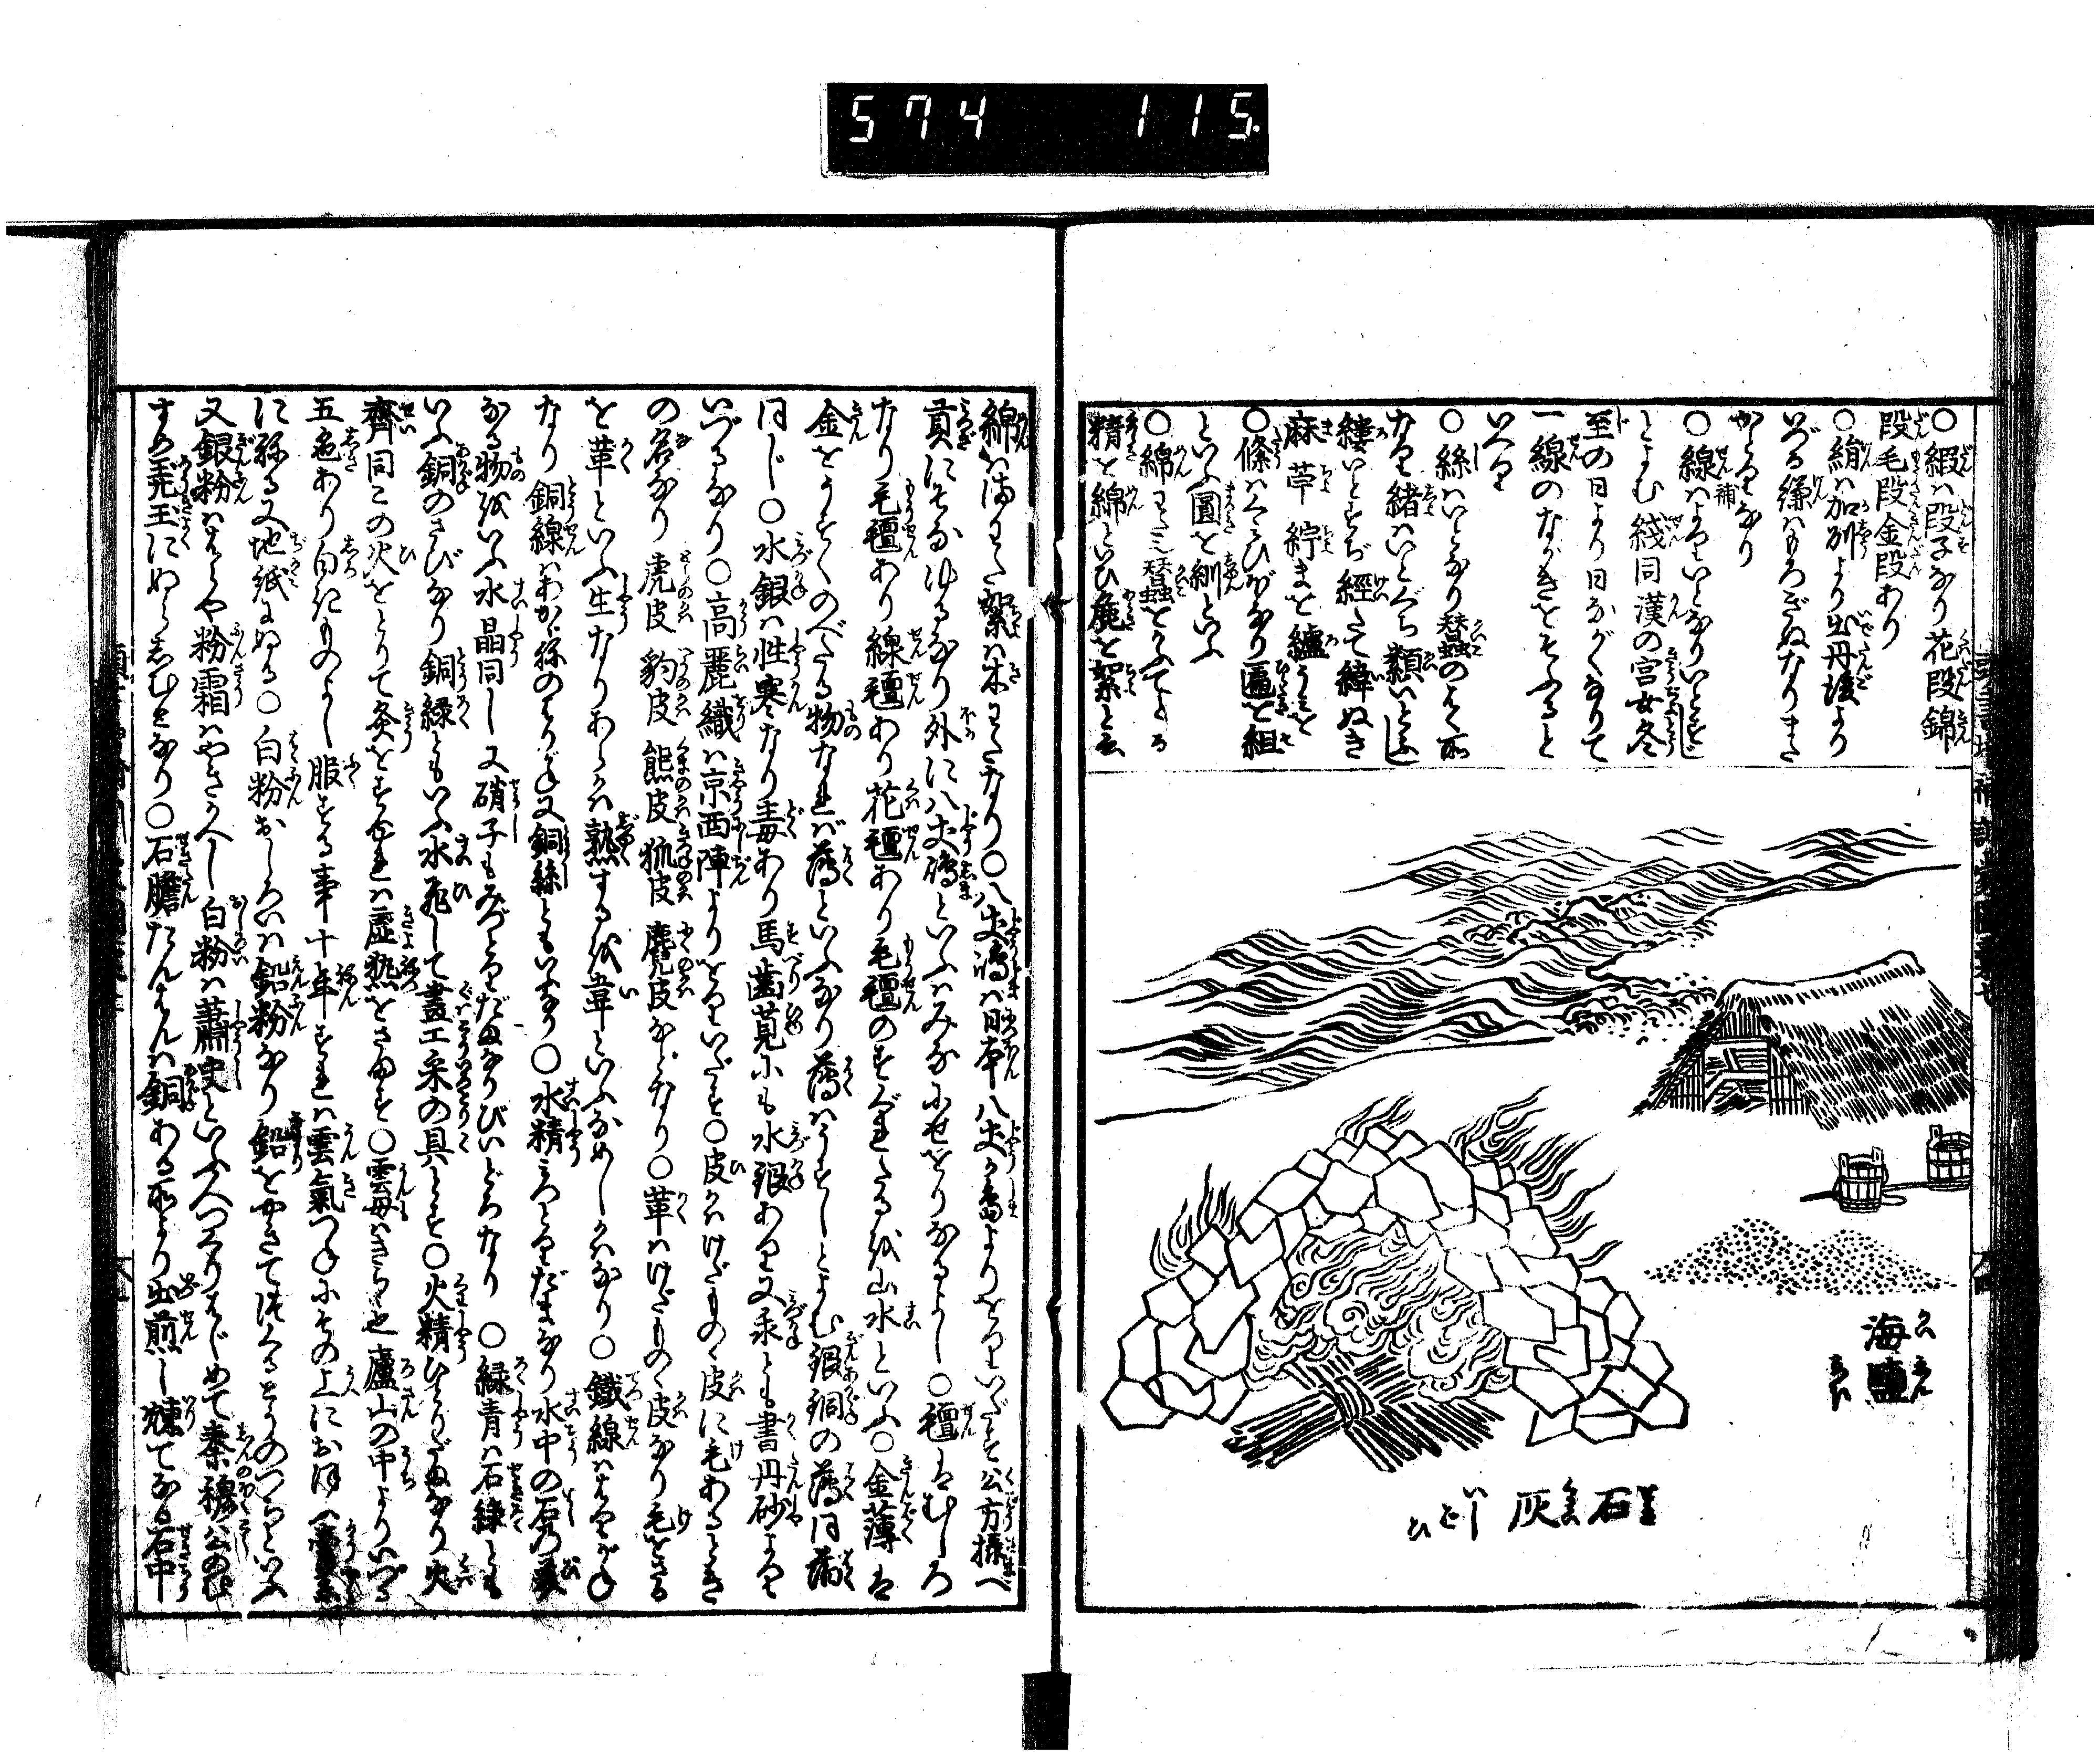 574 115
○緞は段子なり花段錦
段毛段金段あり
○絹は加刕より出丹後より
いづる縑はもろぎぬなりまた
かとりなり
○線補はよりいとなりいとすぢ
とよむ綫同漢の宮女冬
至の日より日ながくなりて
一線のながきをそふると
いへり
○絲はいとなり蠶のはく所
なり緒はいとぐち纇いとふし
縷いとすぢ經たて緯ぬき
麻苧紵まを纑うみを
○條はくみひぼなり匾を組
といふ圓を紃といふ
○綿わたミ蠶をかふてとる
精を綿といひ麁を絮と云
海鹽
かいゑん
石灰
いしばひ
綿はまわた絮は木わたなり○八丈嶋は日本八丈が嶋よりをりいだす公方様へ
貢にそなゆるなり外に八丈嶋といふはみなにせをりなるよし○氊はむしろ
なり毛氊あり線氊あり花氊あり毛氊のすぐれたる
金をうすくのべたる物なれば薄といふなり薄はうすしとよむ銀銅の薄同
同じ○水銀は性寒なり毒あり馬歯莧にも水銀あり又汞とも書丹砂より
いづるなり○高麗織は京西陣よりをりいだす○皮はけだもの皮に毛あるとき
の名なり虎皮豹皮熊皮狐皮麂皮などなり○革はけだもの皮なり毛をさる
を革といふ生なりあらかは熟するを韋といふなめしかはなり○鐵線ははりがね
なり銅線はあかがねのはりがね又銅絲ともいふなり○水精はみづとるだまなり水中の石の
なる物をいふ水晶同し又硝子もみづとるだまなりびいどろなり○緑青は石緑とも
いふ銅のさびなり銅緑ともいふ水飛して畫工采の具とす○火精ひとりだまなり火
齊同この火をとりて灸をすれば虚熱をさます○雲母はきらゝ也廬山の中よりいづる
五色あり白きものよし服する事十年すれば雲氣つねにその上におほへ
に祢る又地紙にぬる○白粉おしろいは鉛粉なり鉛をやきてつくるとうのつちといふ
又銀粉ははらや粉霜はやきかへし白粉は蕭史といふ人つくりはじめて秦穆公のむ
すめ弄玉にぬらしむとなり○石膽たんはんは銅ある所より出煎し煉てなる石中